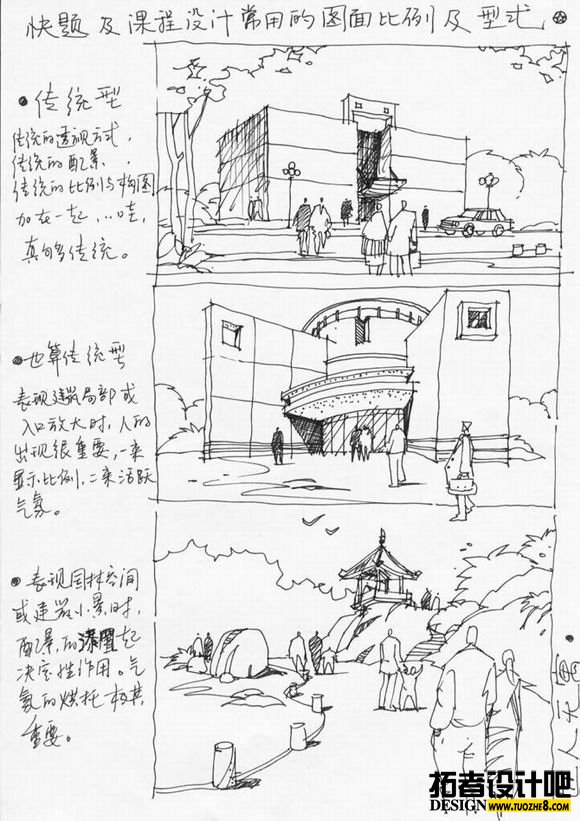 快题及课程设计常用的图面比例及型式
传统型
传统的透视方式,
传统的配景、
传统的比例与构图
加在一起,..哇,
真的多传统。
也算传统型
表现建筑局部或
入口放大时,人的
出现很重要,一来
显示比例,二来活跃
气氛。
表现园林空间
或建筑小景时,
配景的深度起
决定性作用。气
氛的烘托极其
重要。
拓者设计吧
DESIGN WWW.TUOZHE8.COM